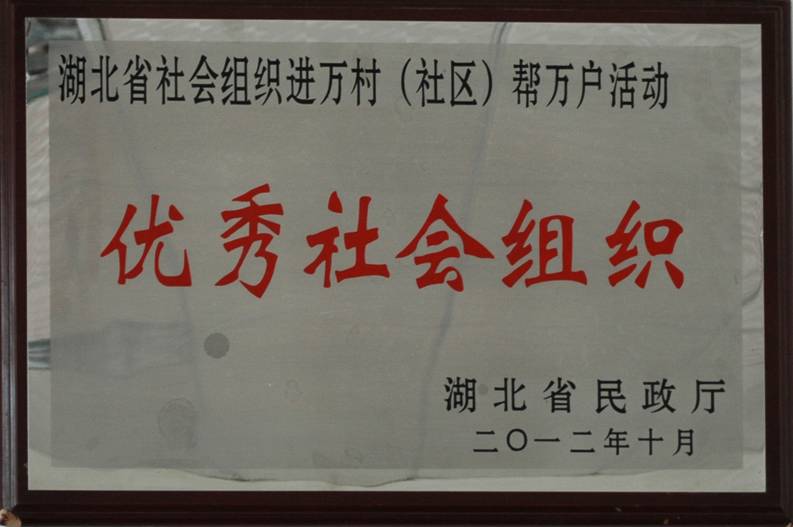 湖北省社会组织进万村（社区）帮万户活动
优秀社会组织
湖北省民政厅
二〇一二年十月